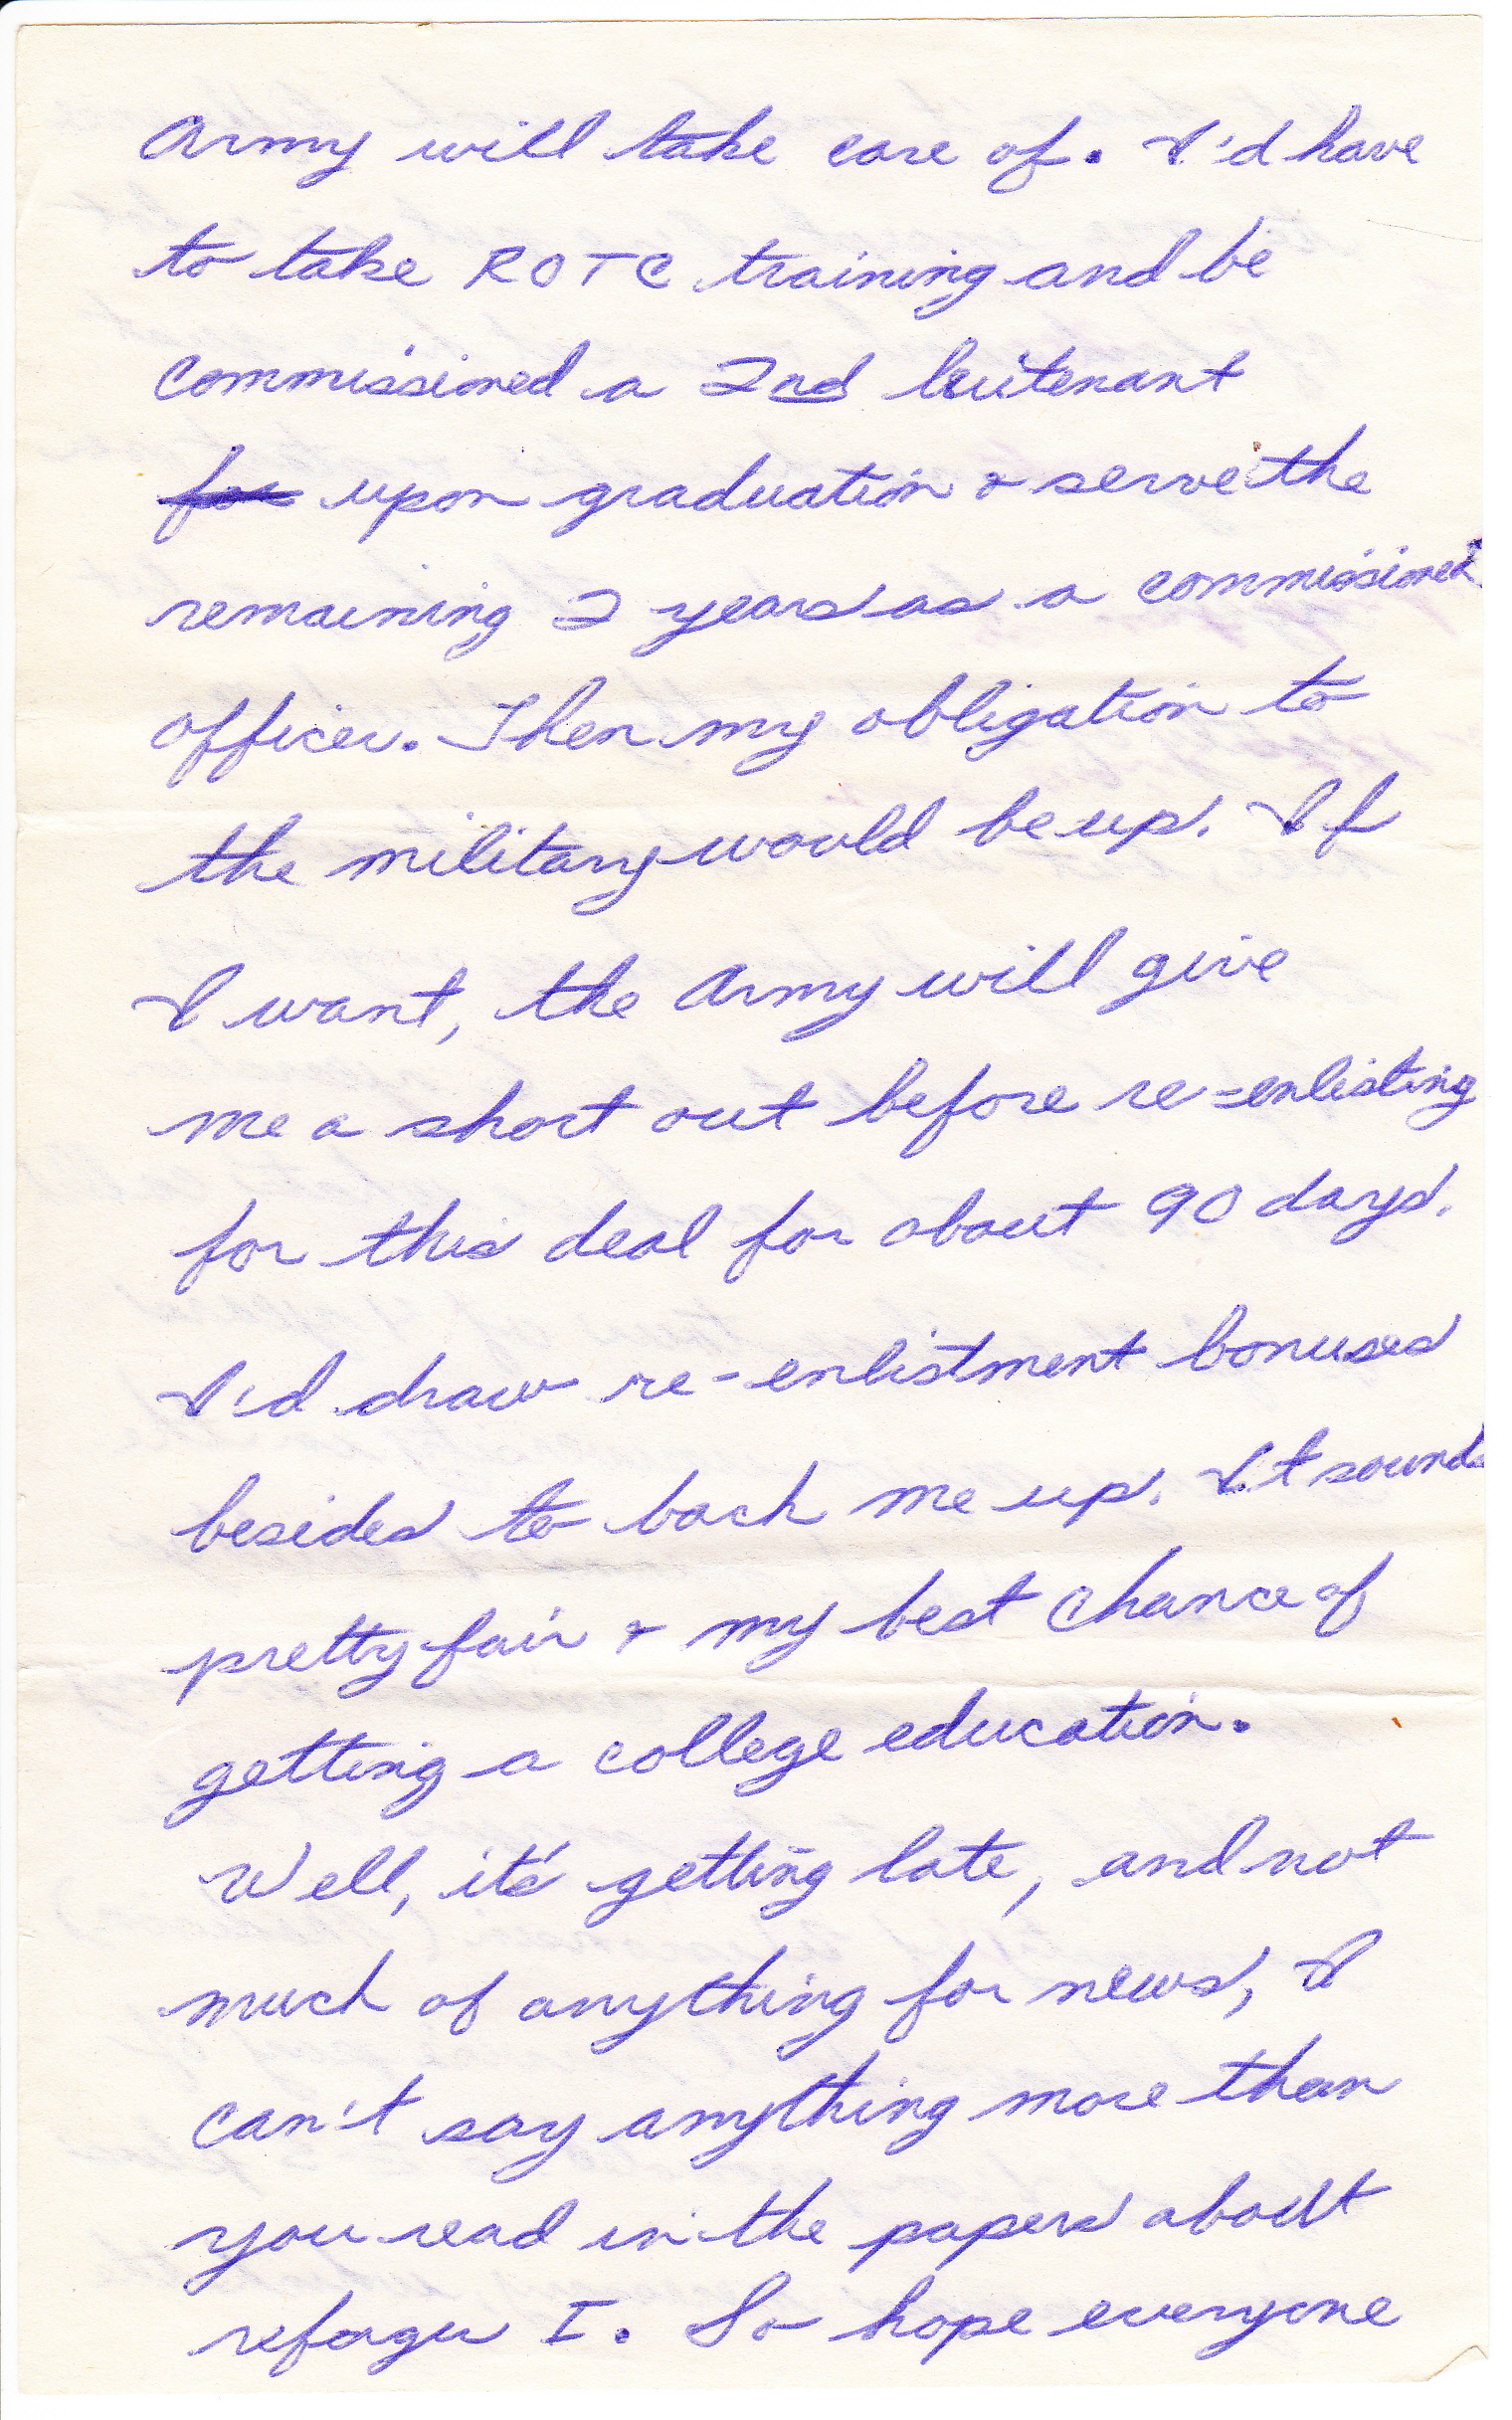 Army will take care of. I'd have
to take ROTC training and be
commissioned a 2nd leutenant
for upon graduation & serve the
remaining 2 years as a commissioned
officer. Then my obligation to
the military would be up. If
I want, the Army will give
me a short out before re-enlisting
for this deal for about 90 days.
I'd draw re-enlistment bonuses
besides to back me up. It sounds
pretty fair & my best chance of
getting a college education.
Well, it's getting late, and not
much of anything for news, I
can't say anything more than
you read in the papers about
reforger I. So hope everyone